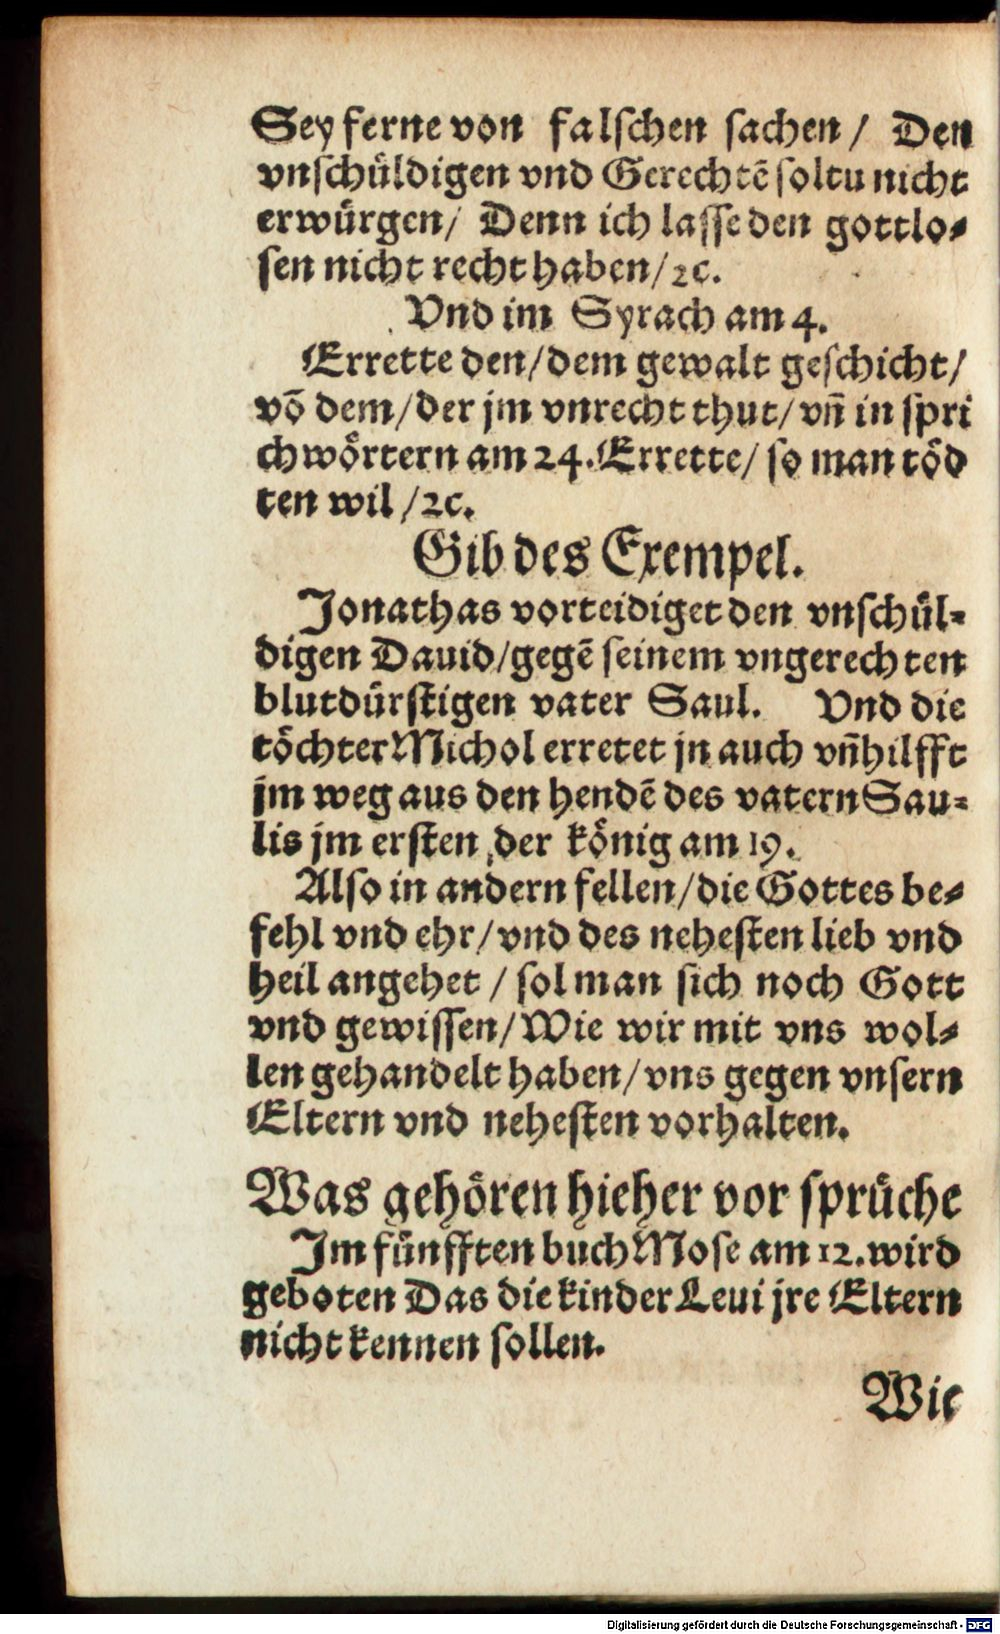 Sey ferne von falschen sachen / Den
vnschüldigen vnd Gerechtē soltu nicht
erwürgen / Denn ich lasse den gottlo-
sen nicht recht haben / ꝛc.
Vnd im Syrach am 4.
Errette den / dem gewalt geschicht /
vō dem / der jm vnrecht thut / vñ in spri
chwörtern am 24. Errette / so man töd
ten wil / ꝛc.
Gib des Exempel.
Jonathas vorteidiget den vnschül-
digen Dauid / gegē seinem vngerechten
blutdürstigen vater Saul. Vnd die
töchter Michol erretet jn auch vñ hilfft
jm weg aus den hendē des vatern Sau-
lis jm ersten der könig am 19.
Also in andern fellen / die Gottes be-
fehl vnd ehr / vnd des nehesten lieb vnd
heil angehet / sol man sich noch Gott
vnd gewissen / Wie wir mit vns wol-
len gehandelt haben / vns gegen vnsern
Eltern vnd nehesten vorhalten.
Was gehören hieher vor sprüche
Im fünfften buch Mose am 12. wird
geboten Das die kinder Leui jre Eltern
nicht kennen sollen.
Wie
Digitalisierung gefördert durch die Deutsche Forschungsgemeinschaft - DFG